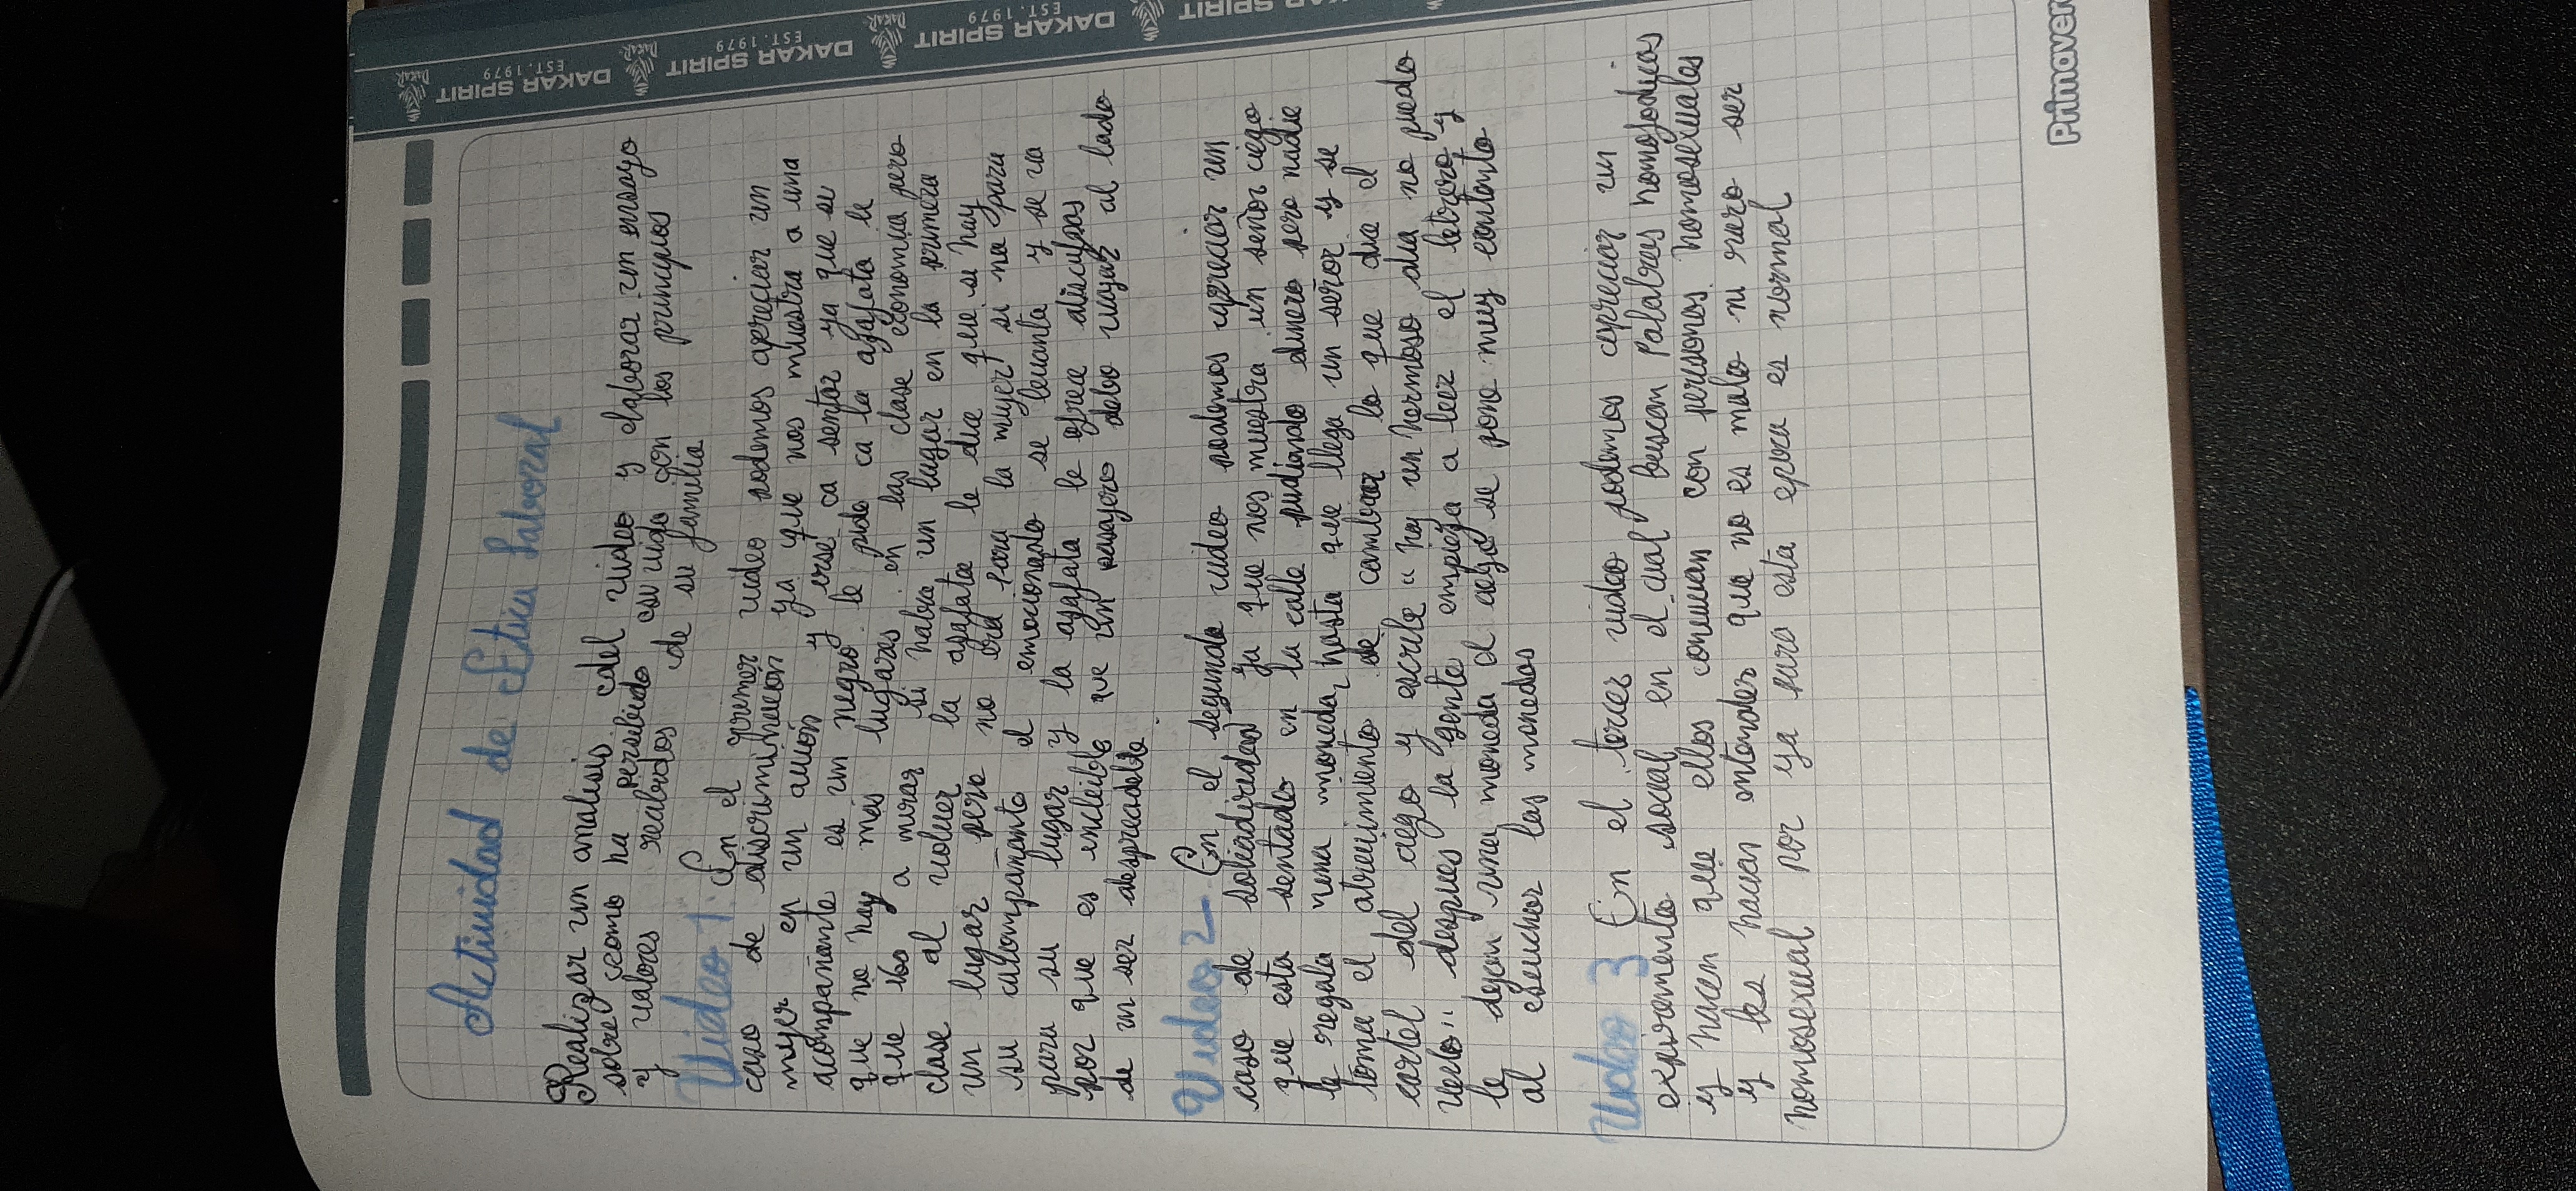 Actividad de Etica Laboral
Realizar un analisis del video y elaborar un ensayo
sobre como ha persibido su vida con los principios
y valores recibidos de su familia
Video 1: En el primer video podemos apreciar un
caso de discriminación ya que nos muestra a una
mujer en un avión y irse a sentar ya que su
acompañante es un negro le pide a la azafata le
que no hay mas lugares en las clase economía pero
que iba a mirar si había un lugar en la primera
clase al volver la azafata le dice que si hay
un lugar pero no era para la mujer si no para
su acompañante el emocionado se levanta y se va
para su lugar y la azafata le ofrece disculpas
por que es increíble que un pasajero deba viajar al lado
de un ser despreciable.
Video 2 - En el segundo video podemos apreciar un
caso de solidaridad ya que nos muestra un señor ciego
que esta sentado en la calle pidiendo dinero pero nadie
le regala una moneda, hasta que llega un señor y se
toma el atrevimiento de cambiar lo que dia el
cartel del ciego y escribe " hoy un hermoso dia no puedo
verlo" despues la gente empieza a leer el letrero y
le dejan una moneda el ciego se pone muy contento
al escuchar las monedas
Video 3 En el tercer video podemos apreciar un
expiremento social en el cual buscan Palabras homofobicas
y hacen que ellos convivan con personas homosexuales
y les hacian entender que no es malo ni raro ser
homosexual por ya para esta epoca es normal
DAKAR SPIRIT
EST. 1979
DAKAR
DAKAR SPIRIT
EST. 1979
DAKAR
DAKAR SPIRIT
EST. 1979
DAKAR
DAKAR SPIRIT
EST. 1979
Primavera